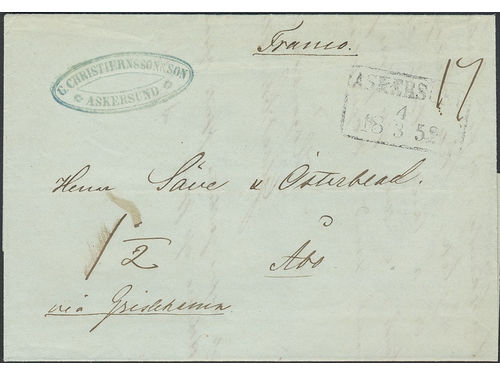 Franco.
C. CHRISTIERNSSON & SON
ASKERSUND
ASKERS
4
18 3 52
17
Herrar Säve & Österblad.
Åbo
1/2
via Grislehamn